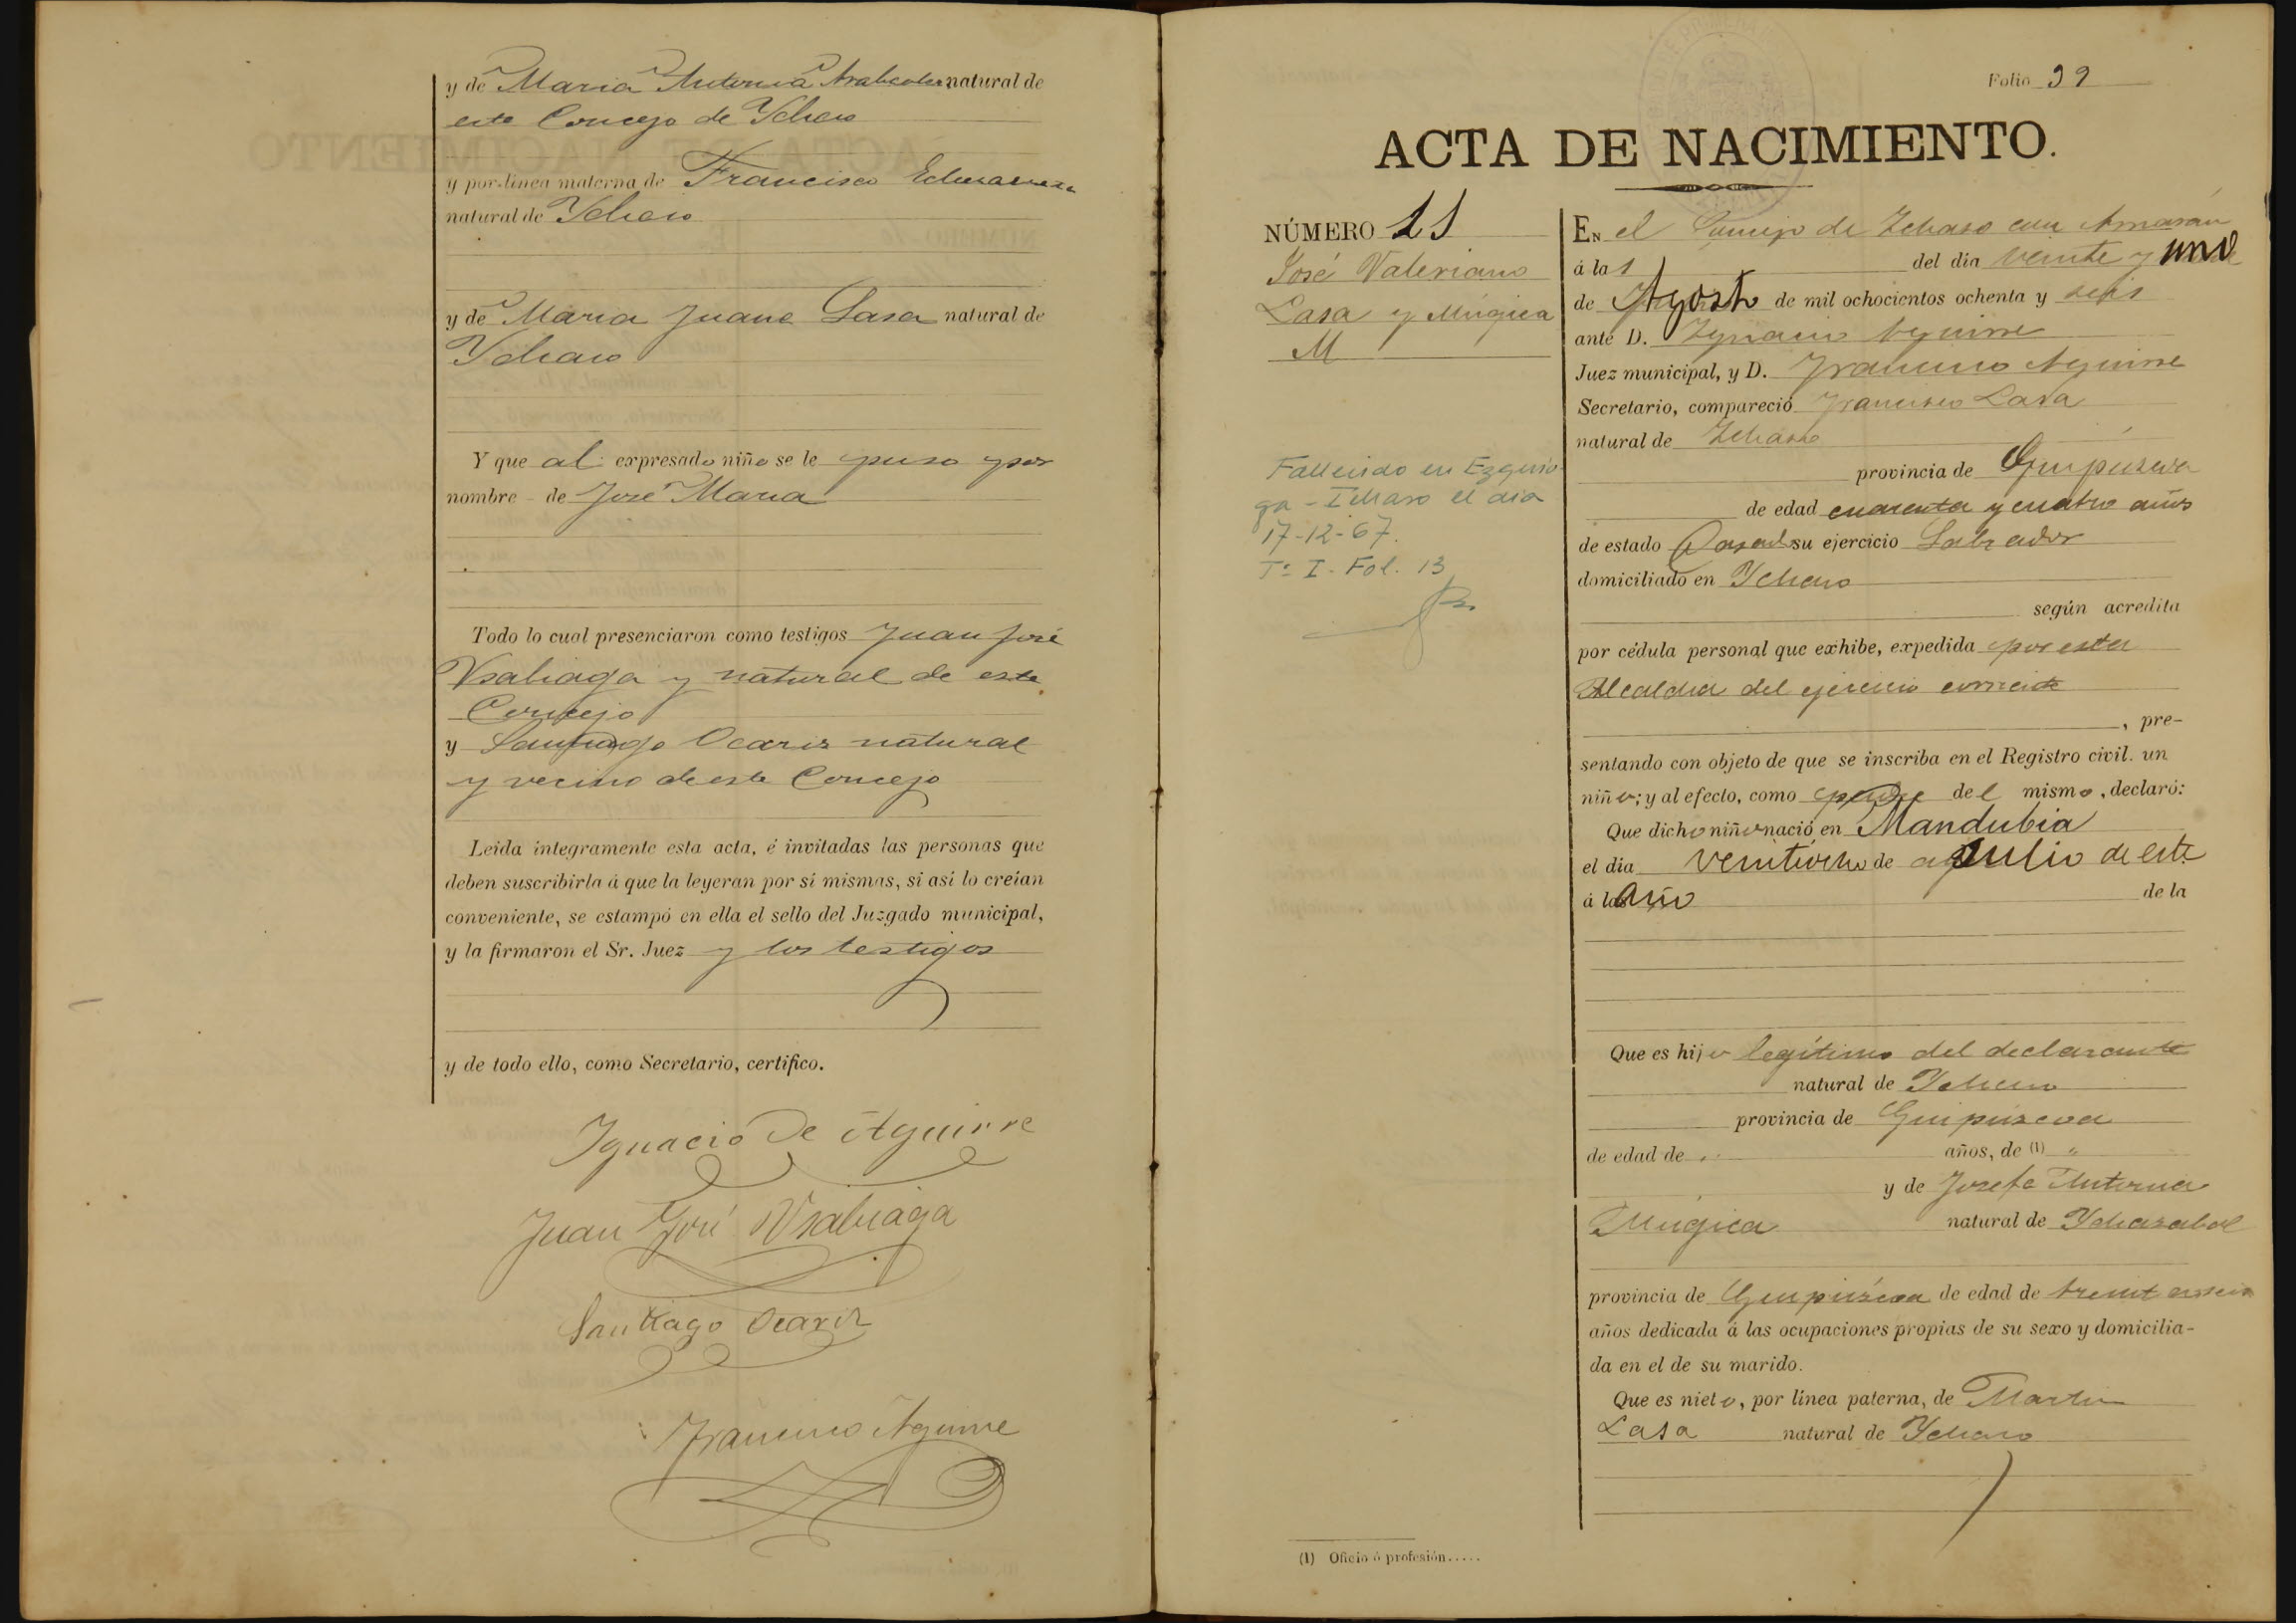 y de Maria Antonia natural de
este Concejo de Ychaso
y por línea materna de Francisco
natural de Ychaso
y de Maria Juana Lasa natural de
Ychaso
Y que al expresado niño se le puso por
nombre de José Maria
Todo lo cual presenciaron como testigos Juan José
Usabiaga y natural de este
Concejo
y Santiago Ocariz natural
y vecino de este Concejo
Leída íntegramente esta acta, é invitadas las personas que
deben suscribirla á que la leyeran por sí mismas, si así lo creían
conveniente, se estampó en ella el sello del Juzgado municipal,
y la firmaron el Sr. Juez y los testigos
y de todo ello, como Secretario, certifico.
Ignacio de Aguirre
Juan José Usabiaga
Santiago Ocariz
Francisco Aguirre
Folio 39
ACTA DE NACIMIENTO.
NÚMERO 11
José Valeriano
Lasa y Múgica
M
Fallecido en Ezquio-
ga - Ichaso el dia
17-12-67.
Tº I. Fol. 13
EN el Concejo de Ichaso
á las del día veinte y uno
de Agosto de mil ochocientos ochenta y seis
ante D. Ignacio Aguirre
Juez municipal, y D. Francisco Aguirre
Secretario, compareció Francisco Lasa
natural de Ichaso
provincia de Guipúzcoa
de edad cuarenta y cuatro años
de estado Casado su ejercicio Labrador
domiciliado en Ychaso
según acredita
por cédula personal que exhibe, expedida por esta
Alcaldia del ejercicio corriente
, pre-
sentando con objeto de que se inscriba en el Registro civil. un
niño; y al efecto, como padre del mismo, declaró:
Que dicho niño nació en Mandubia
el día veintiocho de Julio de este
á las año de la
Que es hijo legítimo del declarante
natural de Ychaso
provincia de Guipúzcoa
de edad de " años, de (1) "
y de Josefa Antonia
Múgica natural de Ychasabal
provincia de Guipúzcoa de edad de treinta
años dedicada á las ocupaciones propias de su sexo y domicilia-
da en el de su marido.
Que es nieto, por línea paterna, de Martin
Lasa natural de Ychaso
(1) Oficio ó profesión.....